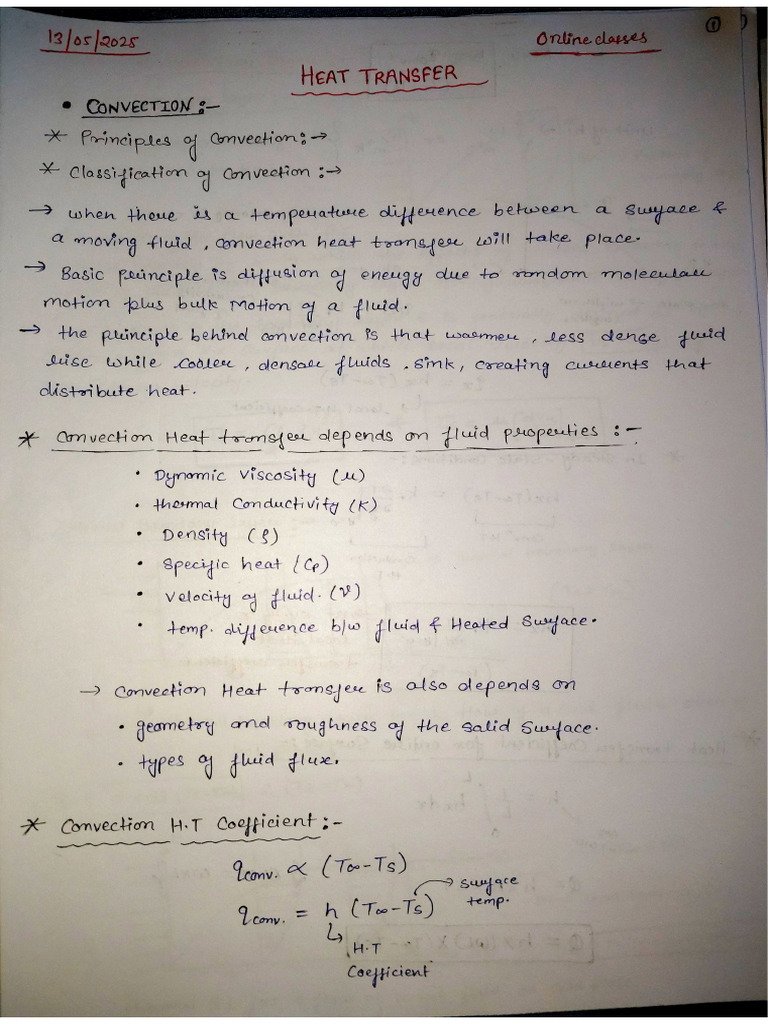 ①
13/05/2025
Online classes
HEAT TRANSFER
• CONVECTION :-
* Principles of Convection :→
* Classification of Convection :→
→ when there is a temperature difference between a surface &
a moving fluid, convection heat transfer will take place.
→ Basic principle is diffusion of energy due to random molecular
motion plus bulk Motion of a fluid.
→ the principle behind convection is that warmer, less dense fluid
rise while cooler, densar fluids. sink, creating currents that
distribute heat.
* Convection Heat transfer depends on fluid properties :-
• Dynamic Viscosity (μ)
• thermal Conductivity (K)
• Density (ρ)
• Specific heat (Cp)
• Velocity of fluid. (V)
• temp. difference b/w fluid & Heated Surface.
→ Convection Heat transfer is also depends on
• geometry and roughness of the salid surface.
• types of fluid flux.
* Convection H.T Coefficient :-
qconv. ∝ (T∞-Ts)
qconv. = h (T∞-Ts) → surface
temp.
↳ H.T
Coefficient